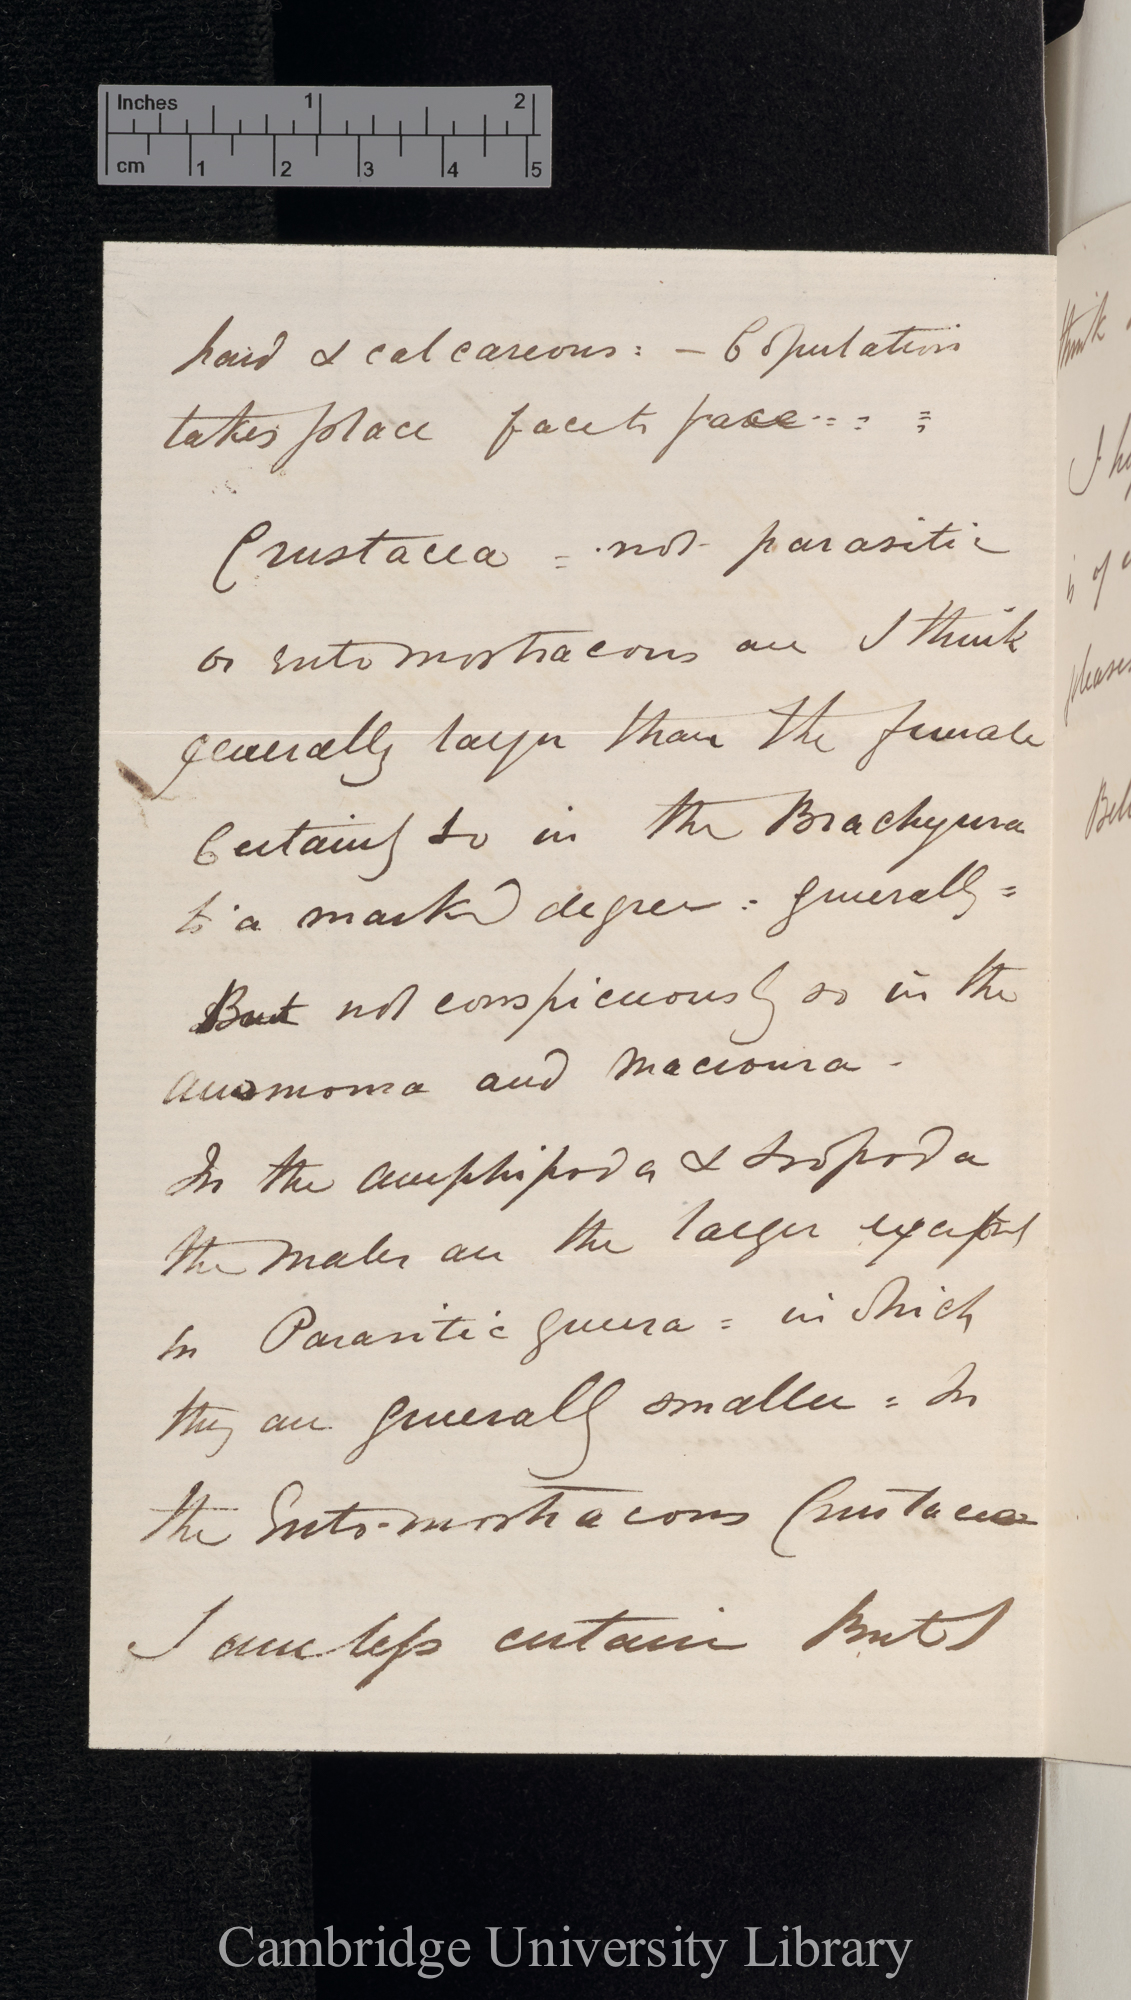 Inches 1 2
cm 1 2 3 4 5
hard & calcareous: – Copulation
takes place face to face = : =
Crustacea = not parasitic
or entomostracous are I think
generally larger than the female
Certainly so in the Brachyura
to a marked degree = generally =
But not conspicuously so in the
anomoura and Macroura –
In the Amphipoda & Isopoda
the Males are the larger except
in Parasitic genera = in which
they are generally smaller = In
the Ento-mostracous Crustacea
I am less certain But I
think
I
is of
pleases
Cambridge University Library